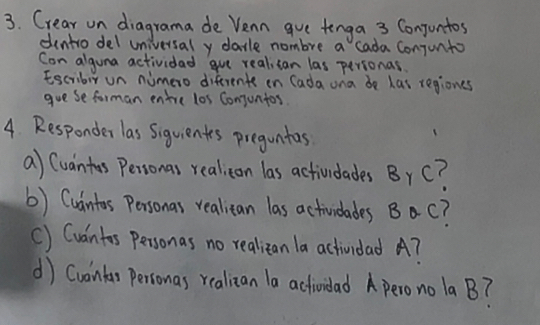 3. Crear un diagrama de Venn que tenga 3 Conjuntos
dentro del universal y darle nombre a cada conjunto
con alguna actividad que realizan las personas.
Escribir un número diferente en cada una de las regiones
que se forman entre los conjuntos.
4. Responder las siguientes preguntas.
a) Cuántas Personas realizan las actividades B y C?
b) Cuántas Personas realizan las actividades B o C?
c) Cuántas Personas no realizan la actividad A?
d) Cuántas Personas realizan la actividad A pero no la B?